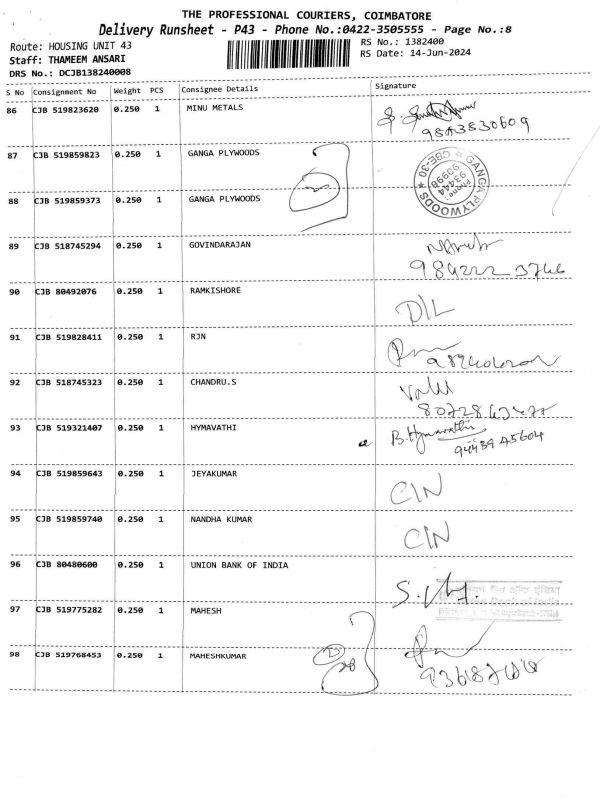 THE PROFESSIONAL COURIERS, COIMBATORE
Delivery Runsheet - P43 - Phone No.:0422-3505555 - Page No.:8
Route: HOUSING UNIT 43 RS No.: 1382400
Staff: THAMEEM ANSARI RS Date: 14-Jun-2024
DRS No.: DCJB138240008
S No Consignment No Weight PCS Consignee Details Signature
86 CJB 519823620 0.250 1 MINU METALS
9843830609
87 CJB 519859823 0.250 1 GANGA PLYWOODS
GANGA PLYWOODS ★ CBE-30 ★ Phone: 93444 90998
88 CJB 519859373 0.250 1 GANGA PLYWOODS
89 CJB 518745294 0.250 1 GOVINDARAJAN
984222 3746
90 CJB 80492076 0.250 1 RAMKISHORE
D/L
91 CJB 519828411 0.250 1 RJN
92 CJB 518745323 0.250 1 CHANDRU.S
93 CJB 519321407 0.250 1 HYMAVATHI B.Hymavathi
94439 45604
94 CJB 519859643 0.250 1 JEYAKUMAR
C/N
95 CJB 519859740 0.250 1 NANDHA KUMAR
C/N
96 CJB 80480600 0.250 1 UNION BANK OF INDIA
97 CJB 519775282 0.250 1 MAHESH
98 CJB 519768453 0.250 1 MAHESHKUMAR